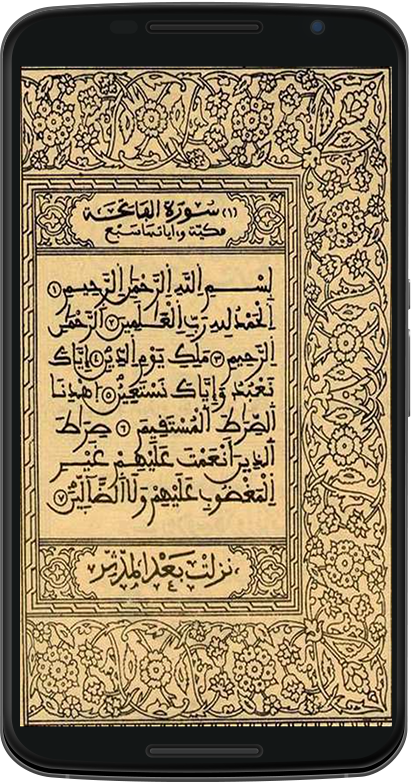 (١) سُورَةُ الفَاتِحَة
مكيّة وآياتها سبع
بِسْمِ اللَّهِ الرَّحْمَٰنِ الرَّحِيمِ ١
الْحَمْدُ لِلَّهِ رَبِّ الْعَٰلَمِينَ ٢ الرَّحْمَٰنِ
الرَّحِيمِ ٣ مَٰلِكِ يَوْمِ الدِّينِ ٤ إِيَّاكَ
نَعْبُدُ وَإِيَّاكَ نَسْتَعِينُ ٥ اهْدِنَا
الصِّرَٰطَ الْمُسْتَقِيمَ ٦ صِرَٰطَ
الَّذِينَ أَنْعَمْتَ عَلَيْهِمْ غَيْرِ
الْمَغْضُوبِ عَلَيْهِمْ وَلَا الضَّالِّينَ ٧
نزلت بعد المدّثّر